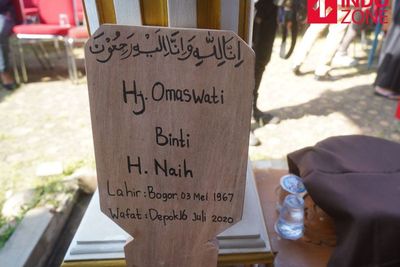 INDO
ZONE
إنا لله وإنا إليه راجعون
Hj. Omaswati
Binti
H. Naih
Lahir: Bogor 03 Mei 1967
Wafat: Depok 16 Juli 2020